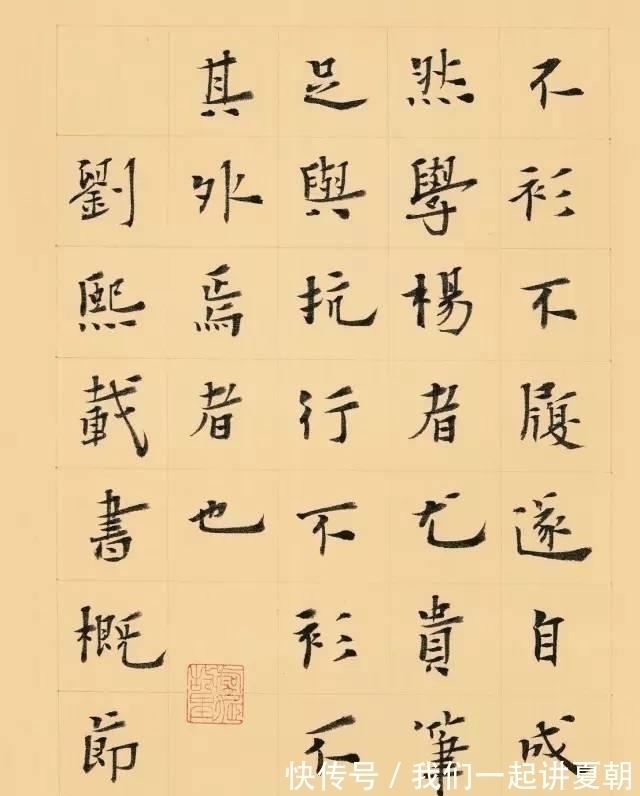 不衫不履遂自成
然學楊者尤貴筆
足與抗行不衫不
其外焉者也
劉熙載書概節
快传号 / 我们一起讲夏朝